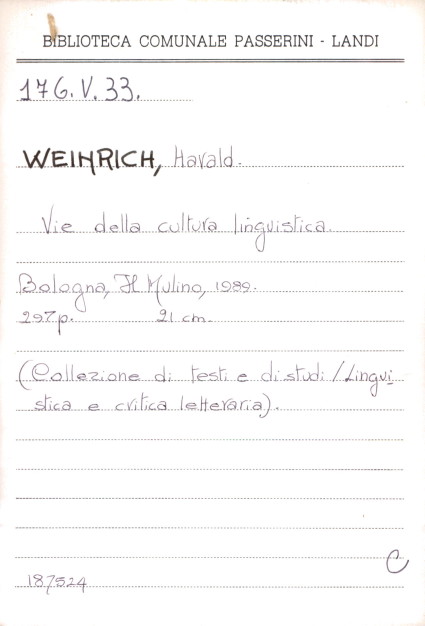 BIBLIOTECA COMUNALE PASSERINI - LANDI
176.V.33.
WEINRICH, Harald.
Vie della cultura linguistica.
Bologna, Il Mulino, 1989.
297p. 21 cm.
(Collezione di testi e di studi / Lingui
stica e critica letteraria).
C
187524